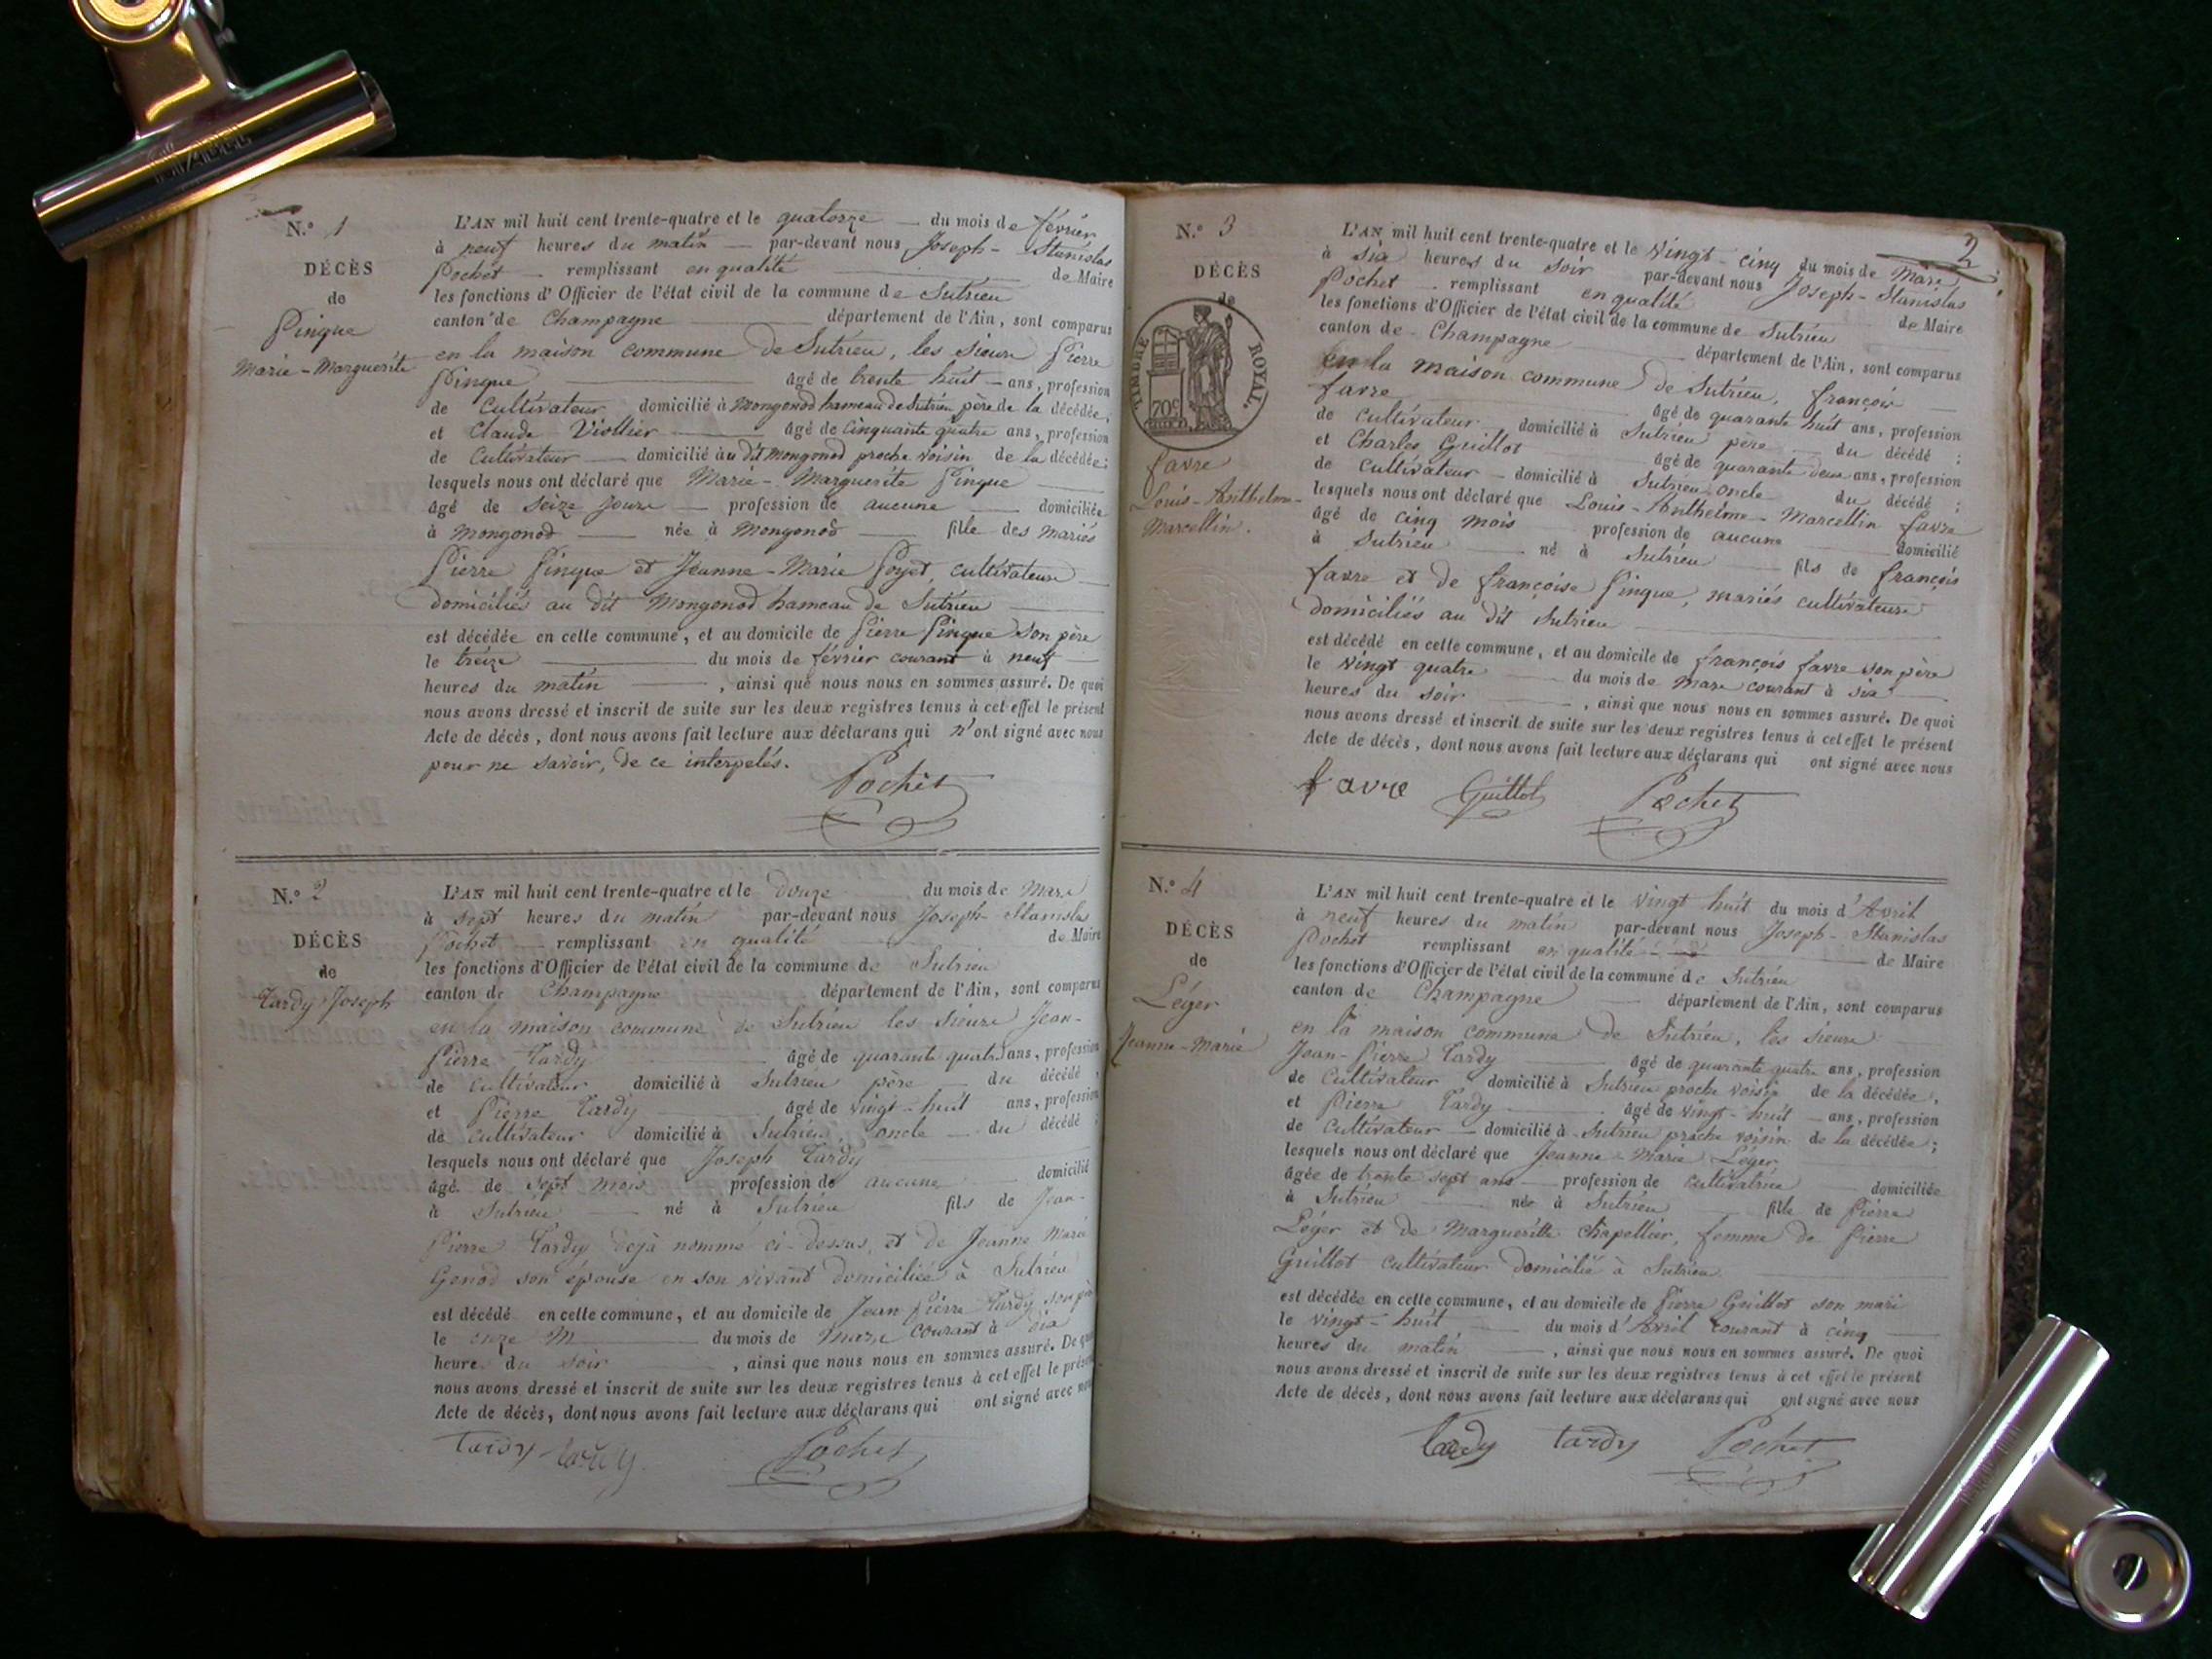 N.º 1
DÉCÈS
de
Pinque
Marie-Marguerite
L'AN mil huit cent trente-quatre et le quatorze du mois de février
à neuf heures du matin par-devant nous Joseph-Stanislas
Pochet remplissant en qualité de Maire
les fonctions d'Officier de l'état civil de la commune de Sutrieu
canton de Champagne département de l'Ain, sont comparus
en la maison commune de Sutrieu, les sieurs Pierre
Pinque âgé de trente huit ans, profession
de Cultivateur domicilié à Mongonod hameau de Sutrieu père de la décédée;
et Claude Viollier âgé de cinquante quatre ans, profession
de Cultivateur domicilié au dit Mongonod proche voisin de la décédée;
lesquels nous ont déclaré que Marie-Marguerite Pinque
âgé de seize jours profession de aucune domiciliée
à Mongonod née à Mongonod fille des mariés
Pierre Pinque et Jeanne-Marie Poyet, cultivateurs
domiciliés au dit Mongonod hameau de Sutrieu
est décédée en cette commune, et au domicile de Pierre Pinque son père
le treize du mois de février courant à neuf
heures du matin, ainsi que nous nous en sommes assuré. De quoi
nous avons dressé et inscrit de suite sur les deux registres tenus à cet effet le présent
Acte de décès, dont nous avons fait lecture aux déclarans qui n'ont signé avec nous
pour ne savoir, de ce interpelés.
Pochet
N.º 2
DÉCÈS
de
Tardy Joseph
L'AN mil huit cent trente-quatre et le douze du mois de Mars
à sept heures du matin par-devant nous Joseph-Stanislas
Pochet remplissant en qualité de Maire
les fonctions d'Officier de l'état civil de la commune de Sutrieu
canton de Champagne département de l'Ain, sont comparus
en la maison commune de Sutrieu les sieurs Jean-
Pierre Tardy âgé de quarante quatre ans, profession
de cultivateur domicilié à Sutrieu père du décédé,
et Pierre Tardy âgé de vingt-huit ans, profession
de cultivateur domicilié à Sutrieu oncle du décédé;
lesquels nous ont déclaré que Joseph Tardy
âgé de sept mois profession de aucune domicilié
à Sutrieu né à Sutrieu fils de Jean-
Pierre Tardy dejà nommé ci-dessus, et de Jeanne Marie
Genod son épouse en son vivant domiciliée à Sutrieu
est décédé en cette commune, et au domicile de Jean Pierre Tardy son père
le onze M du mois de Mars courant à six
heures du soir, ainsi que nous nous en sommes assuré. De quoi
nous avons dressé et inscrit de suite sur les deux registres tenus à cet effet le présent
Acte de décès, dont nous avons fait lecture aux déclarans qui ont signé avec nous
Tardy Tardy Pochet
2
N.º 3
DÉCÈS
de
TIMBRE ROYAL.
70c
favre
Louis-Anthelme-
Marcellin.
L'AN mil huit cent trente-quatre et le vingt-cinq du mois de Mars
à six heures du soir par-devant nous Joseph-Stanislas
Pochet remplissant en qualité de Maire
les fonctions d'Officier de l'état civil de la commune de Sutrieu
canton de Champagne département de l'Ain, sont comparus
en la maison commune de Sutrieu, françois
favre âgé de quarante huit ans, profession
de cultivateur domicilié à Sutrieu père du décédé;
et Charles Guillot âgé de quarante deux ans, profession
de cultivateur domicilié à Sutrieu, oncle du décédé;
lesquels nous ont déclaré que Louis-Anthelme-Marcellin favre
âgé de cinq mois profession de aucune domicilié
à Sutrieu né à Sutrieu fils de françois
favre et de françoise Pinque, mariés cultivateurs
domiciliés au dit Sutrieu
est décédé en cette commune, et au domicile de françois favre son père
le vingt quatre du mois de Mars courant à six
heures du soir, ainsi que nous nous en sommes assuré. De quoi
nous avons dressé et inscrit de suite sur les deux registres tenus à cet effet le présent
Acte de décès, dont nous avons fait lecture aux déclarans qui ont signé avec nous
favre Guillot Pochet
N.º 4
DÉCÈS
de
Léger
Jeanne-Marie
L'AN mil huit cent trente-quatre et le vingt huit du mois d'Avril
à neuf heures du matin par-devant nous Joseph-Stanislas
Pochet remplissant en qualité de Maire
les fonctions d'Officier de l'état civil de la commune de Sutrieu
canton de Champagne département de l'Ain, sont comparus
en la maison commune de Sutrieu, les sieurs
Jean-Pierre Tardy âgé de quarante quatre ans, profession
de Cultivateur domicilié à Sutrieu proche voisin de la décédée,
et Pierre Tardy âgé de vingt-huit ans, profession
de Cultivateur domicilié à Sutrieu proche voisin de la décédée;
lesquels nous ont déclaré que Jeanne-Marie Léger
âgée de trente sept ans profession de cultivatrice domiciliée
à Sutrieu née à Sutrieu fille de Pierre
Léger et de Margueritte Chapellier, femme de Pierre
Guillot cultivateur domicilié à Sutrieu
est décédée en cette commune, et au domicile de Pierre Guillot son mari
le vingt-huit du mois d'Avril courant à cinq
heures du matin, ainsi que nous nous en sommes assuré. De quoi
nous avons dressé et inscrit de suite sur les deux registres tenus à cet effet le présent
Acte de décès, dont nous avons fait lecture aux déclarans qui ont signé avec nous
Tardy tardy Pochet